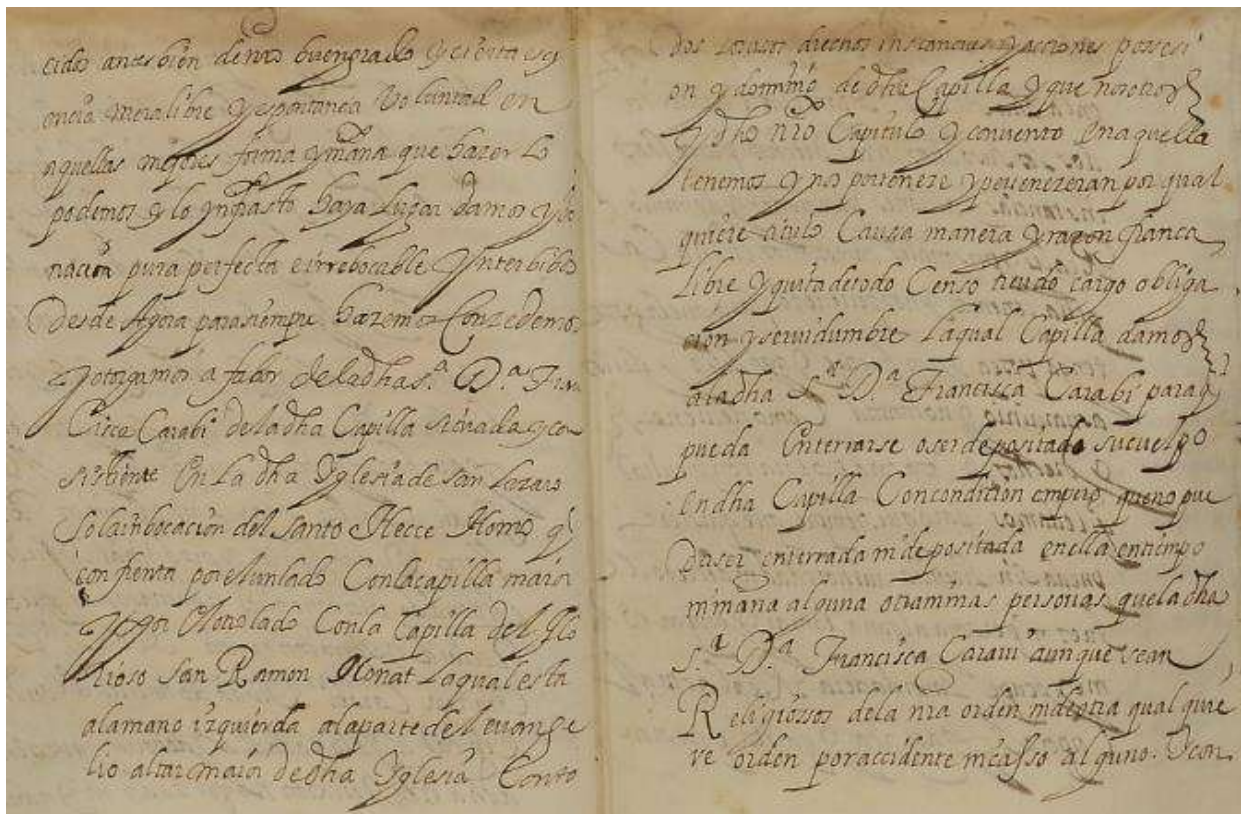 cidos antes bien de nro buen grado y cierta ciq
encia mera libre y espontanea Voluntad en
aquellas mejores forma y mana que hazer Lo
podemos y lo ynfrasto haya Lugar damos y do
nacion pura perfecta e irrebocable ynterbibos
desde Agora para siempre hazemos Conzedemos
y otorgamos a fabor de la dha s.ª D.ª Fran
Cisca Carabi de la dha Capilla sitiada y co
sistiente En La dha Yglesia de san Lazaro
So la inbocacion del santo Hecce Homo q
confrenta por el un lado Con la capilla maior
y por el otro lado Con la Capilla del Glo
rioso san Ramon Nonat La qual esta
a la mano izquierda a la parte del euange
lio altar maior de dha Yglesia Con to
dos Los usos drechos instancias y acciones posesi
on y dominio de dha Capilla y que nosotros
y dho nro Capitulo y convento en aquella
tenemos y nos perteneze y pertenezeran por qual
quiere titulo Causa manera y razon franca
Libre y quita de todo Censo treudo cargo obliga
cion y seruidumbre La qual Capilla damos
a la dha S.ª D.ª Francisca Carabi para q
pueda Enterrarse o ser depositado su cuerpo
en dha Capilla Con condicion empero que no pue
da ser enterrada ni depositada en ella en tiempo
ni mana alguna otra ni mas personas que la dha
s.ª D.ª Francisca Caraui aunque sean
Religiossos de la nra orden ni de otra qual quie
re orden por accidente ni casso alguno. Y con